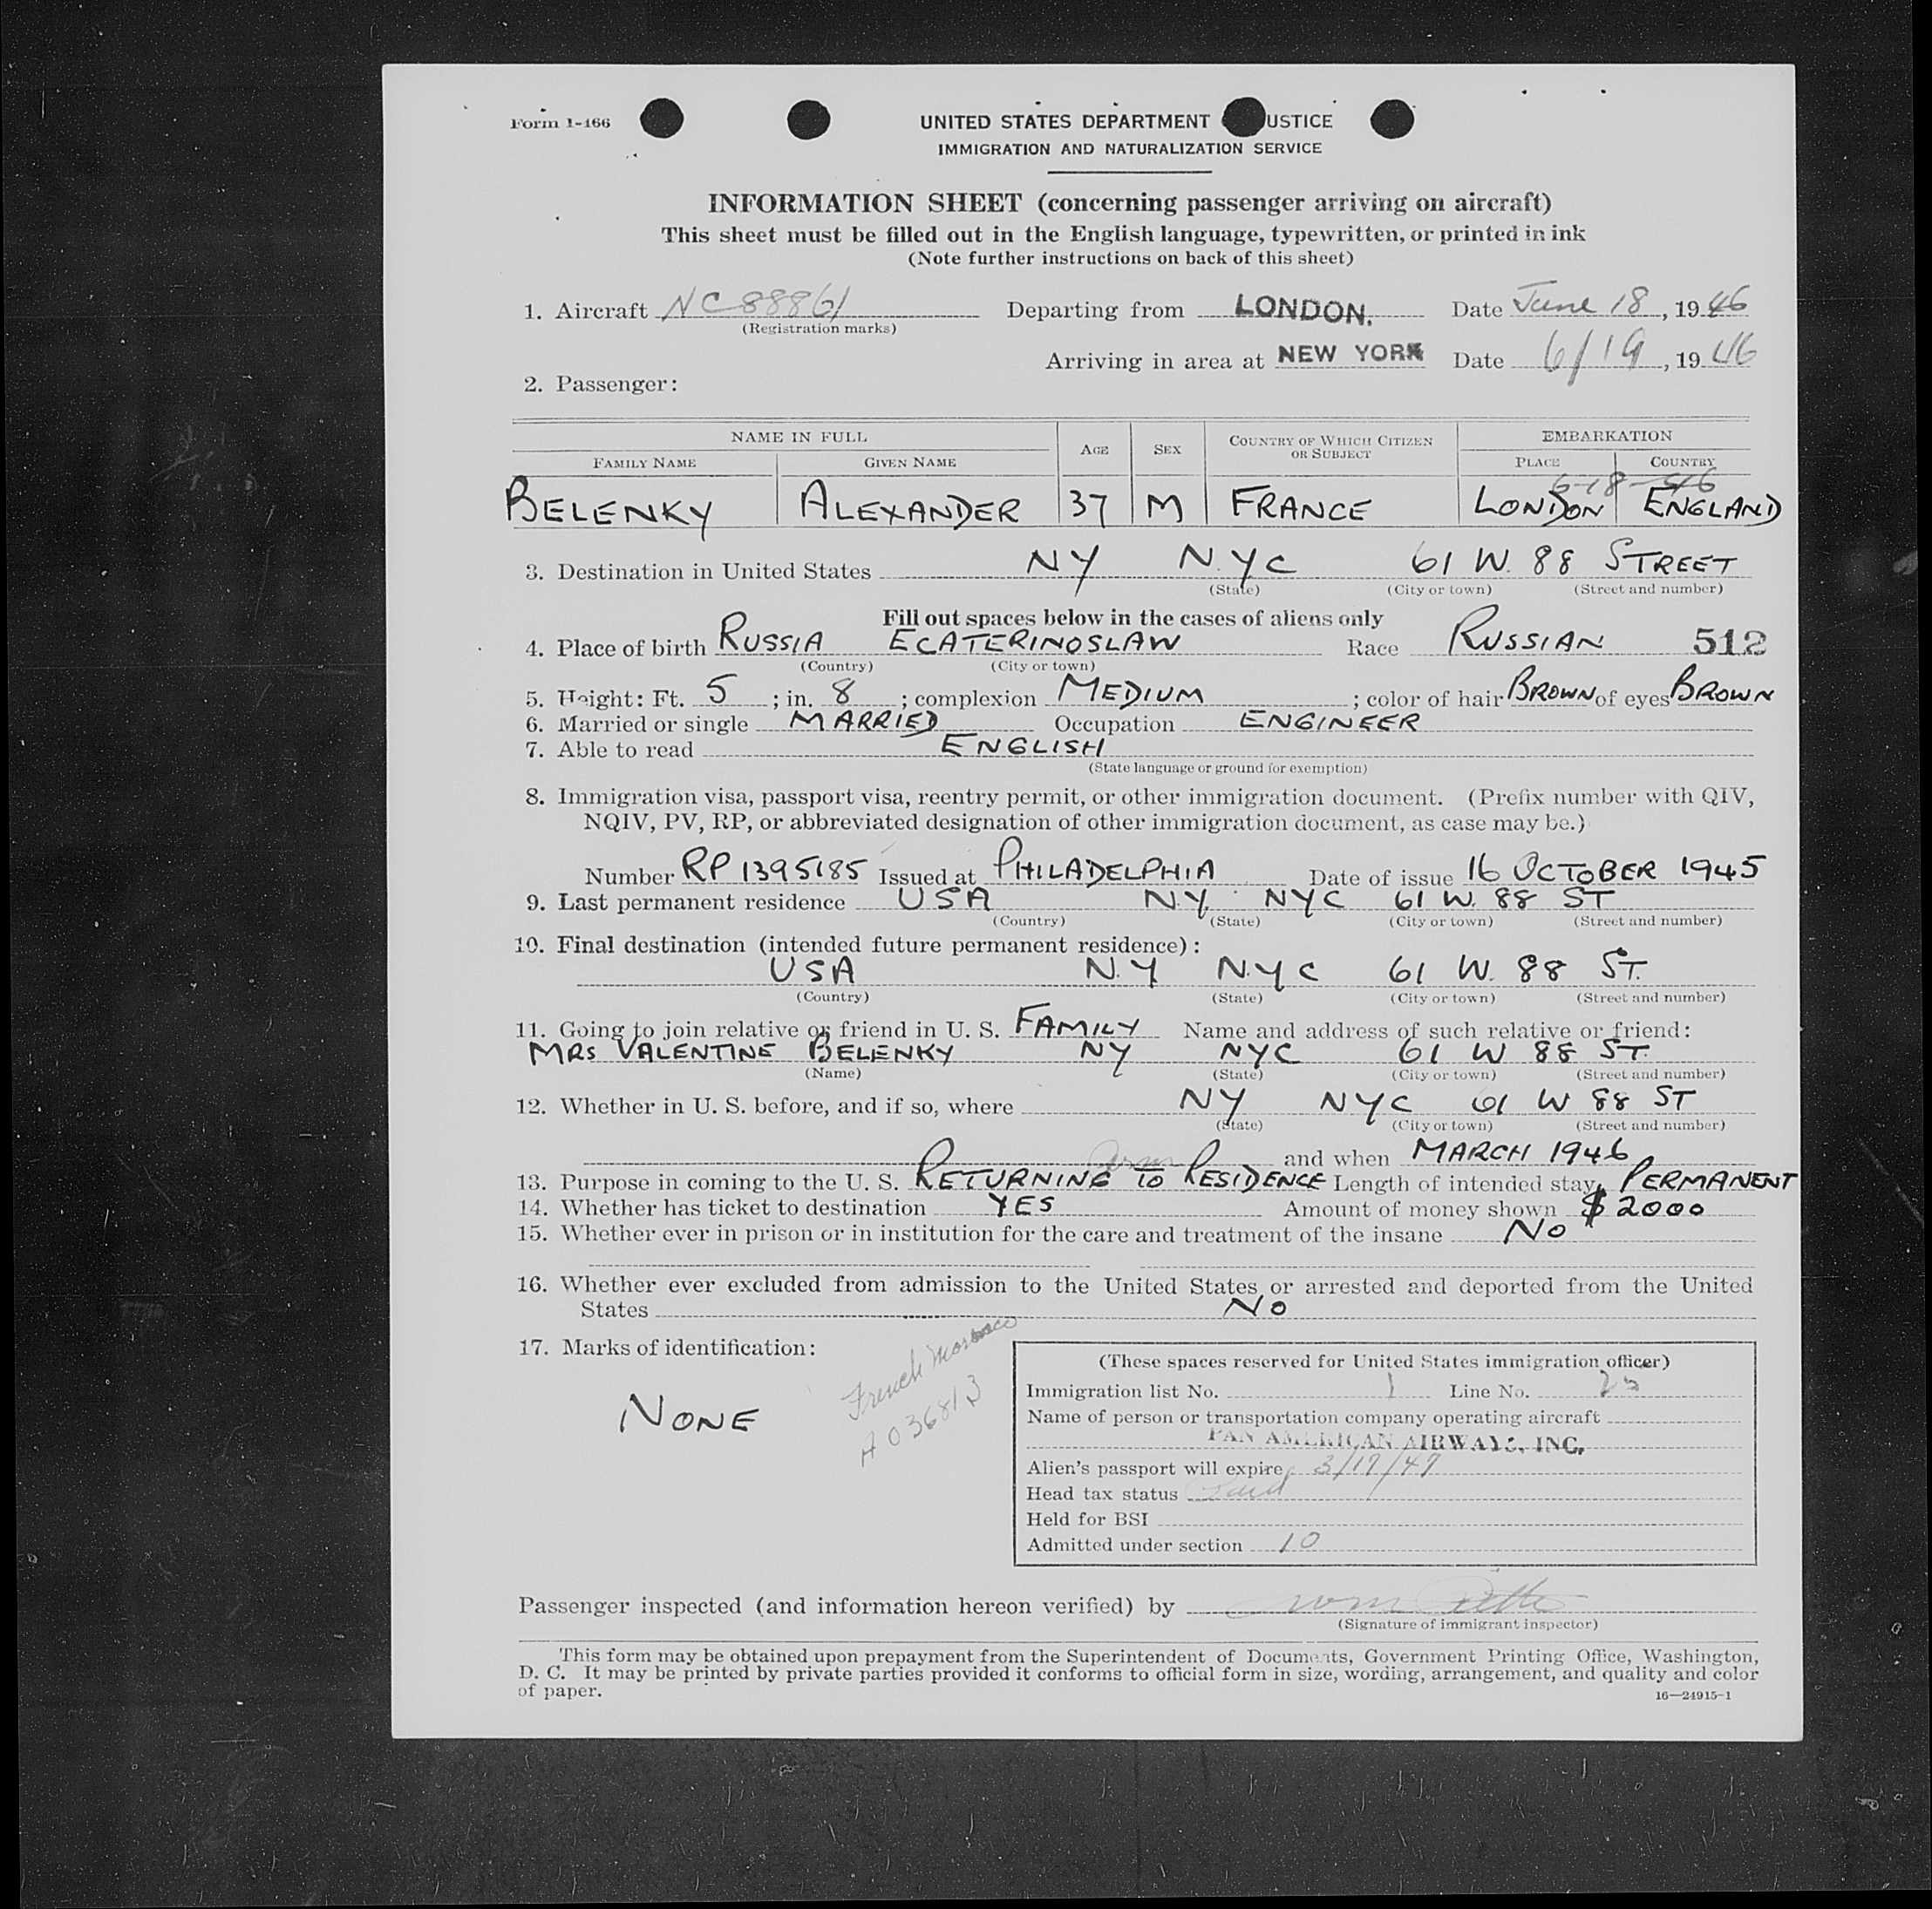 Form I-466
UNITED STATES DEPARTMENT USTICE
IMMIGRATION AND NATURALIZATION SERVICE
INFORMATION SHEET (concerning passenger arriving on aircraft)
This sheet must be filled out in the English language, typewritten, or printed in ink
(Note further instructions on back of this sheet)
1. Aircraft NC 88861 Departing from LONDON. Date June 18, 1946
(Registration marks)
Arriving in area at NEW YORK Date 6/19, 1946
2. Passenger:
NAME IN FULL AGE SEX COUNTRY OF WHICH CITIZEN OR SUBJECT EMBARKATION
FAMILY NAME GIVEN NAME PLACE COUNTRY
6-18-46
BELENKY ALEXANDER 37 M FRANCE LONDON ENGLAND
3. Destination in United States NY NYC 61 W. 88 STREET
(State) (City or town) (Street and number)
Fill out spaces below in the cases of aliens only
4. Place of birth RUSSIA ECATERINOSLAW Race RUSSIAN 512
(Country) (City or town)
5. Height: Ft. 5; in. 8; complexion MEDIUM; color of hair BROWN of eyes BROWN
6. Married or single MARRIED Occupation ENGINEER
7. Able to read ENGLISH
(State language or ground for exemption)
8. Immigration visa, passport visa, reentry permit, or other immigration document. (Prefix number with QIV,
NQIV, PV, RP, or abbreviated designation of other immigration document, as case may be.)
Number RP 1395185 Issued at PHILADELPHIA Date of issue 16 OCTOBER 1945
9. Last permanent residence USA N.Y. NYC 61 W. 88 ST
(Country) (State) (City or town) (Street and number)
10. Final destination (intended future permanent residence):
USA N.Y N.Y C 61 W. 88 ST.
(Country) (State) (City or town) (Street and number)
11. Going to join relative or friend in U. S. FAMILY Name and address of such relative or friend:
MRS VALENTINE BELENKY NY NYC 61 W 88 ST.
(Name) (State) (City or town) (Street and number)
12. Whether in U. S. before, and if so, where NY NYC 61 W 88 ST
(State) (City or town) (Street and number)
and when MARCH 1946
13. Purpose in coming to the U. S. RETURNING TO RESIDENCE Length of intended stay PERMANENT
14. Whether has ticket to destination YES Amount of money shown $ 2000
15. Whether ever in prison or in institution for the care and treatment of the insane NO
16. Whether ever excluded from admission to the United States or arrested and deported from the United
States NO
17. Marks of identification:
NONE
French Morocco
A 036813
(These spaces reserved for United States immigration officer)
Immigration list No. 1 Line No. 25
Name of person or transportation company operating aircraft
PAN AMERICAN AIRWAYS, INC.
Alien's passport will expire 3/17/47
Head tax status
Held for BSI
Admitted under section 10
Passenger inspected (and information hereon verified) by
(Signature of immigrant inspector)
This form may be obtained upon prepayment from the Superintendent of Documents, Government Printing Office, Washington,
D. C. It may be printed by private parties provided it conforms to official form in size, wording, arrangement, and quality and color
of paper.
16—24915-1